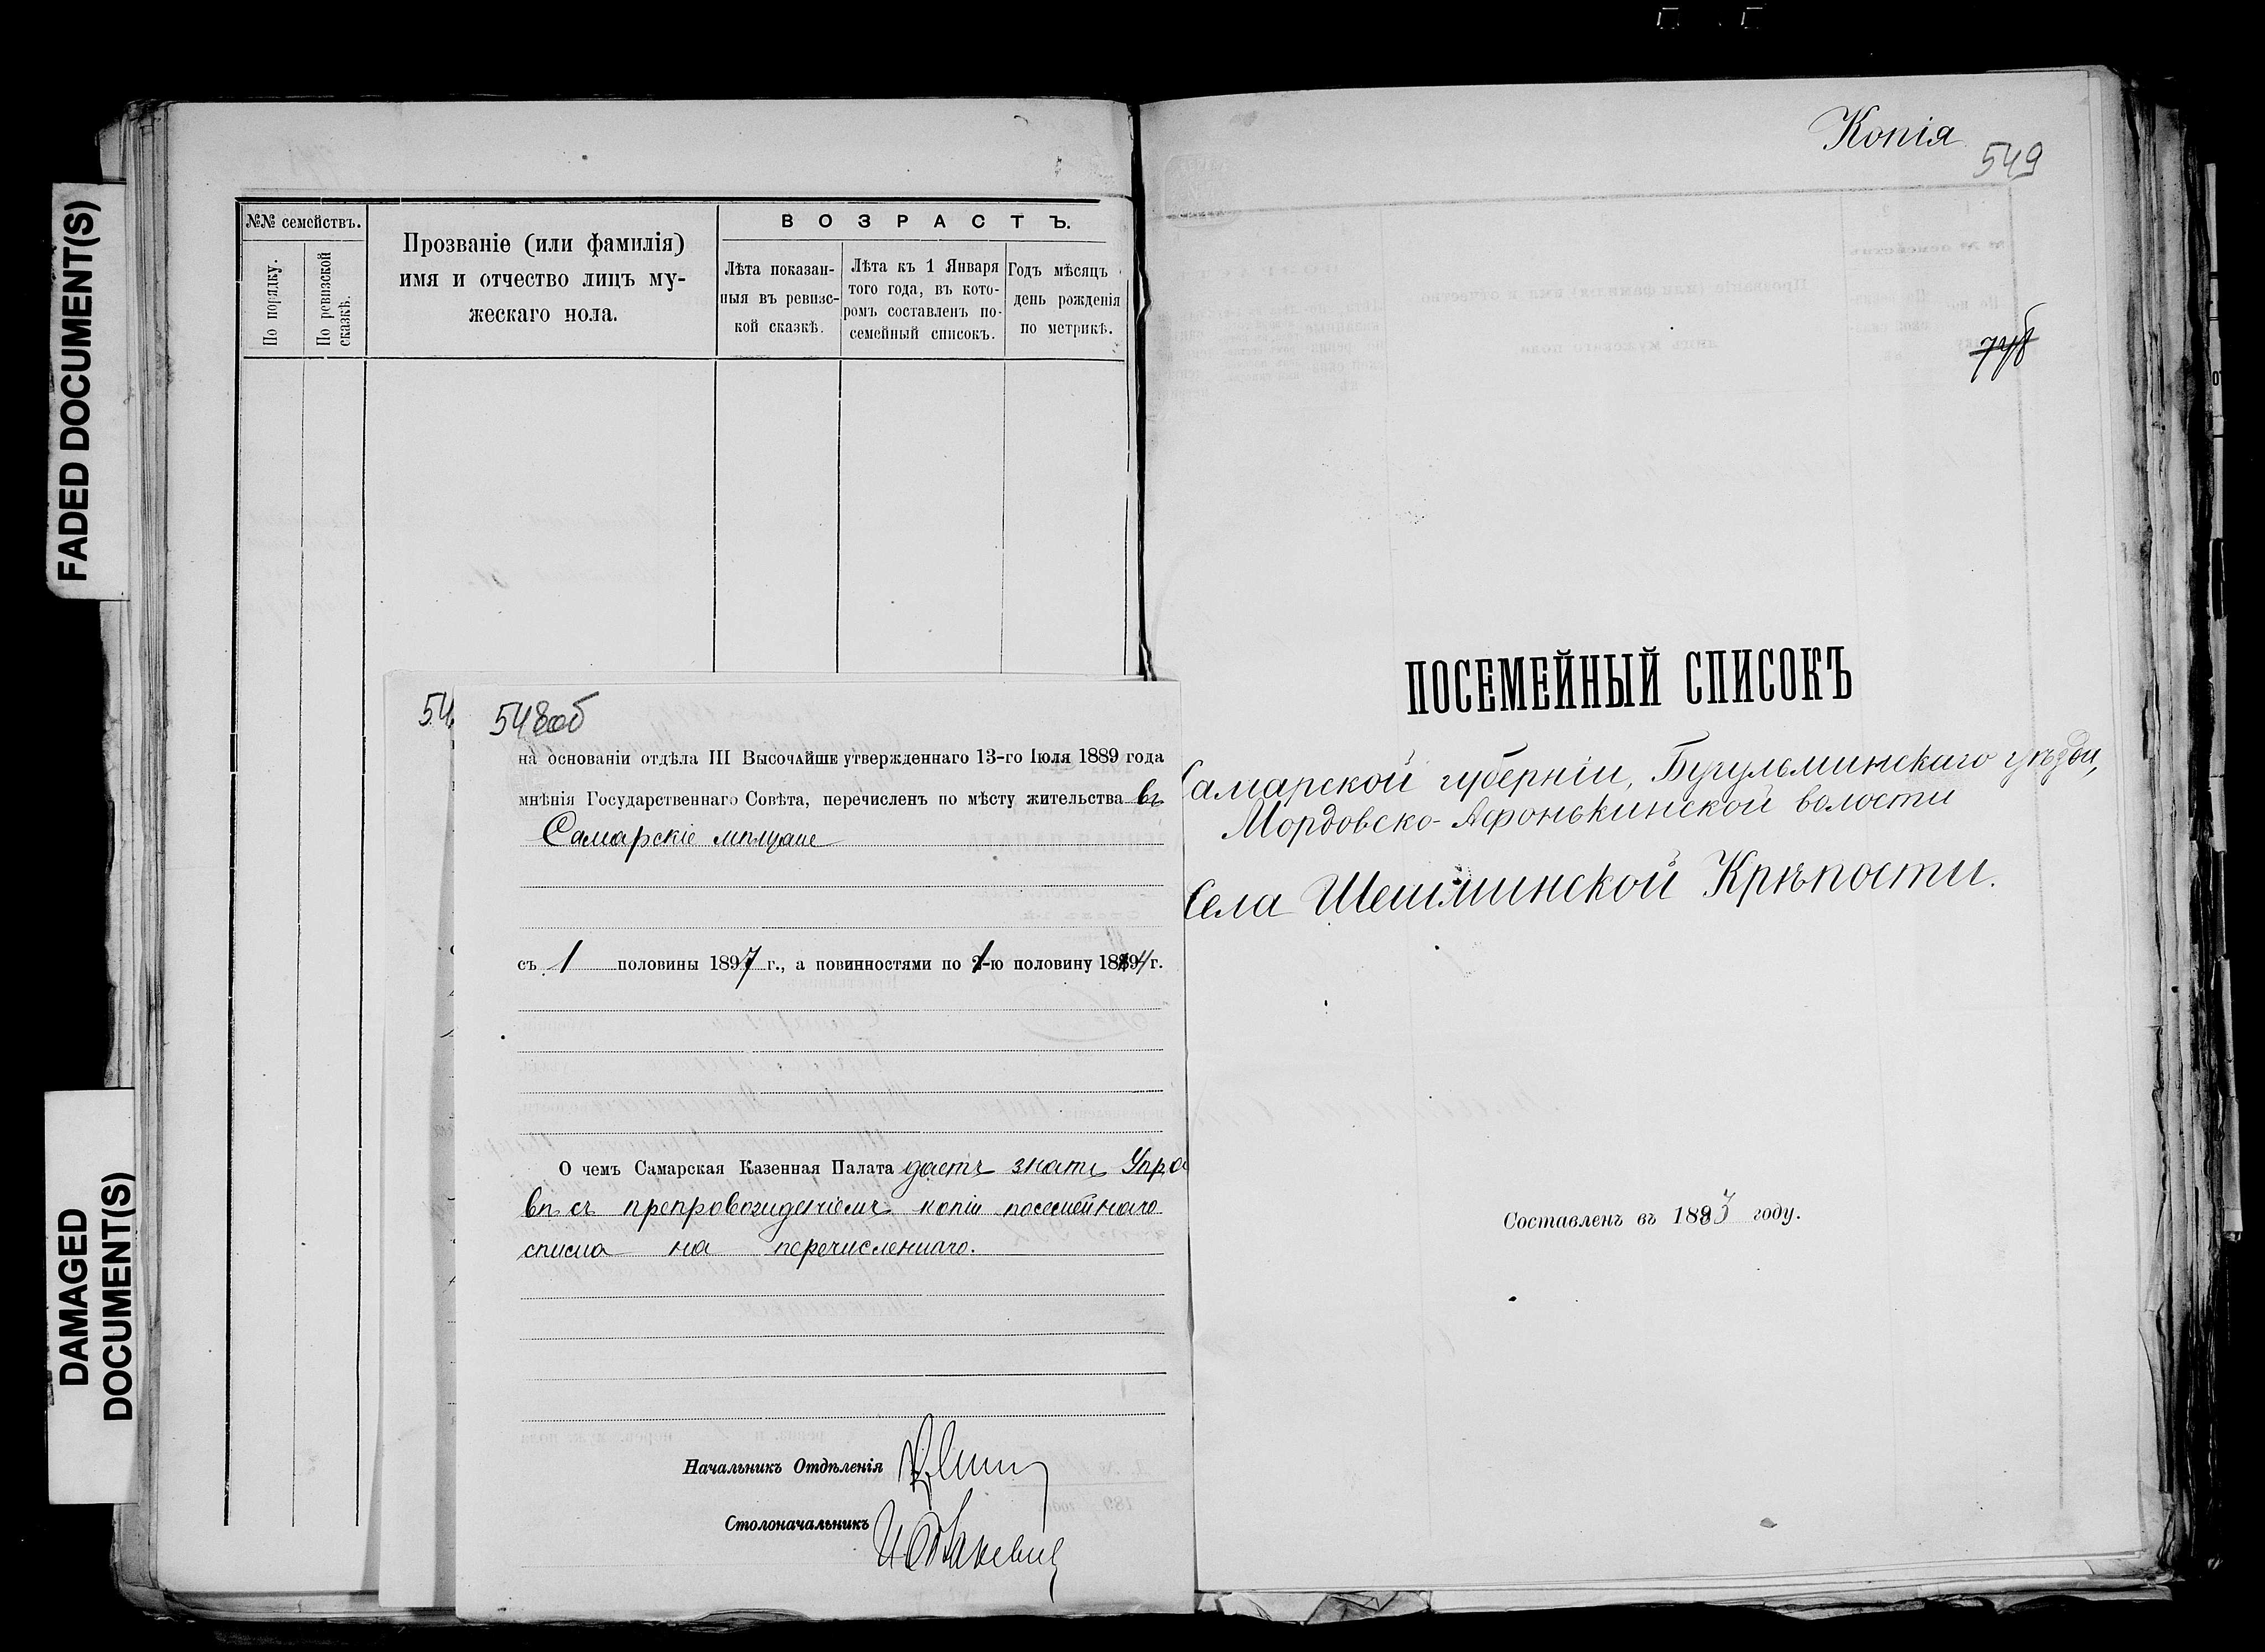 FADED DOCUMENT(S)
DAMAGED
DOCUMENT(S)
№№ семействъ.
По порядку.
По ревизской
сказкѣ.
Прозваніе (или фамилія)
имя и отчество лицъ му-
жескаго пола.
ВОЗРАСТЪ.
Лѣта показан-
ныя въ ревизс-
кой сказкѣ.
Лѣта къ 1 Января
того года, въ кото-
ромъ составленъ по-
семейный списокъ.
Годъ мѣсяцъ
день рожденія
по метрикѣ.
54
548об
на основаніи отдѣла III Высочайше утвержденнаго 13-го Іюля 1889 года
мнѣнія Государственнаго Совѣта, перечисленъ по мѣсту жительства въ
Самарскіе мѣщане
съ 1 половины 1897 г., а повинностями по 1-ю половину 1894 г.
О чемъ Самарская Казенная Палата даетъ знать Упра
вѣ съ препровожденіемъ копіи посемейнаго
списка на перечисленнаго.
Начальникъ Отдѣленія
Столоначальникъ
Копія
549
ПОСЕМЕЙНЫЙ СПИСОКЪ
Самарской губерніи, Бугульминскаго уѣзда,
Мордовско-Афонькинской волости
Села Шешминской Крѣпости.
Составленъ въ 1883 году.